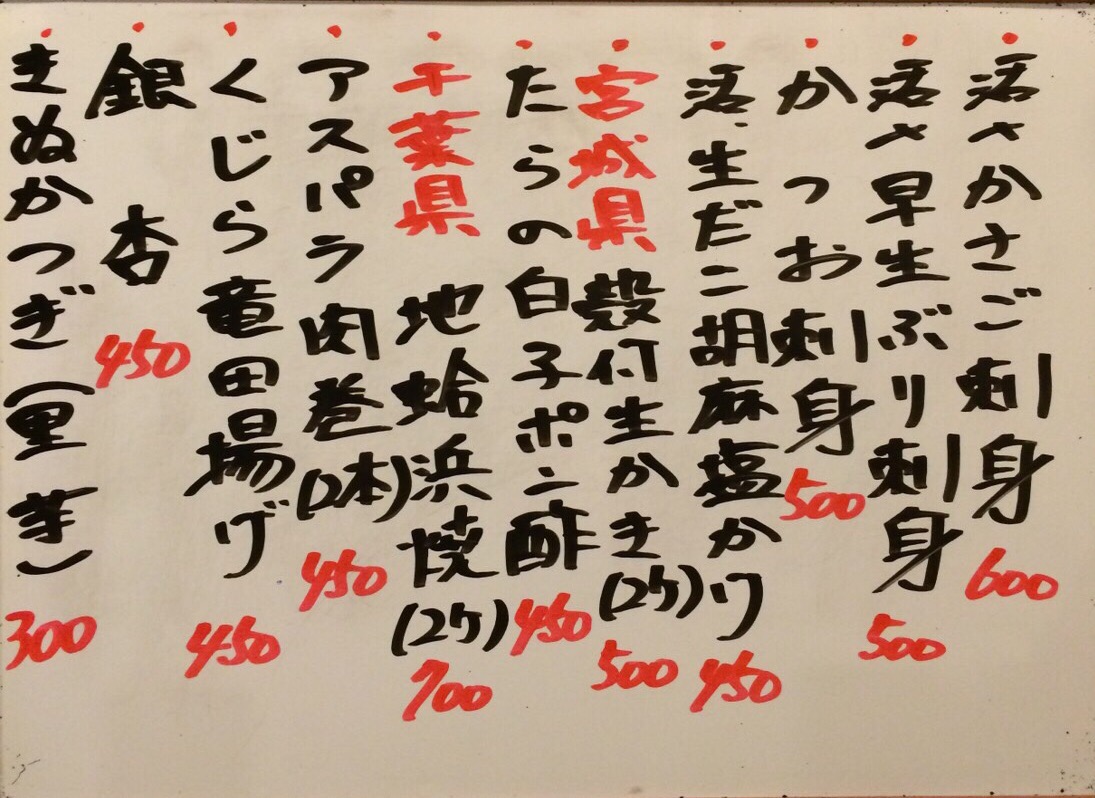 活〆かさご刺身 600
活〆早生ぶり刺身 500
かつお刺身 500
活、生だこ胡麻塩かけ 450
宮城県 殻付生かき(2ケ) 500
たらの白子ポン酢 450
千葉県 地蛤浜焼(2ケ) 700
アスパラ肉巻(2本) 450
くじら竜田揚げ 450
銀杏 450
きぬかつぎ(里芋) 300